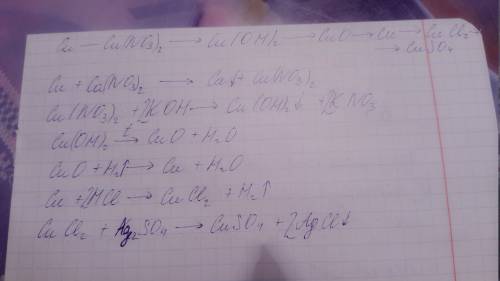 Cu — Cu(NO3)2 → Cu(OH)2 → CuO → Cu → CuCl2 →
→ CuSO4
Cu + Ca(NO3)2 → Ca↓ + Cu(NO3)2
Cu(NO3)2 + 2KOH → Cu(OH)2↓ + 2KNO3
Cu(OH)2 →t CuO + H2O
CuO + H2↑ → Cu + H2O
Cu + 2HCl → CuCl2 + H2↑
CuCl2 + Ag2SO4 → CuSO4 + 2AgCl↓